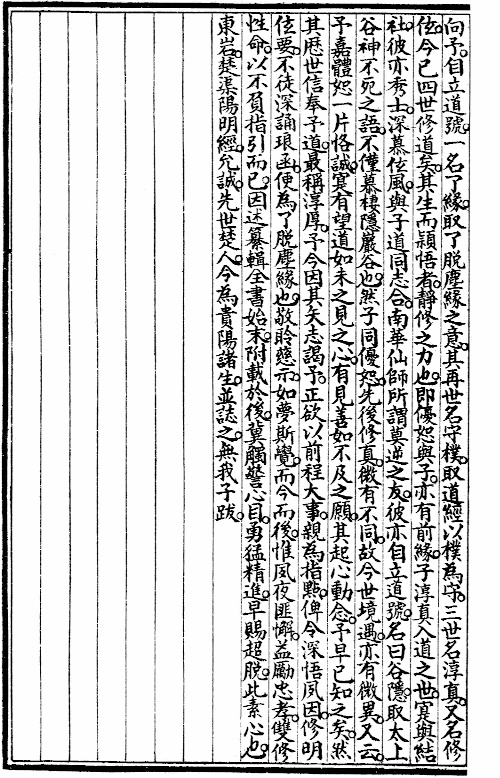 向予自立道號一名了緣取了脫塵緣之意其再世名守樸取道經以樸為守三世名淳真又名修
伭今已四世修道矣其生而穎悟者靜修之力也即優恕與子亦有前緣子淳真入道之世寔與結
社彼亦秀士深慕伭風與子道同志合南華仙師所謂莫逆之友彼亦自立道號名曰谷隱取太上
谷神不死之語不僅慕棲隱巖谷也然子同優恕先後修真微有不同故今世境遇亦有微異又云
予嘉體恕一片恪誠寔有望道如未之見之心有見善如不及之願其起心動念予早已知之矣然
其歷世信奉予道最稱淳厚予今因其矢志謁予正欲以前程大事親為指點俾令深悟夙因修明
伭要不徒深誦琅函便為了脫塵緣也敬聆慈示如夢斯覺而今而後惟夙夜匪懈益勵忠孝雙修
性命以不負指引而已因述纂輯全書始末附載於後冀觸警心目勇猛精進早賜超脫此素心也
東岩楚渠陽明經允誠先世楚人今為貴陽諸生並誌之無我子跋